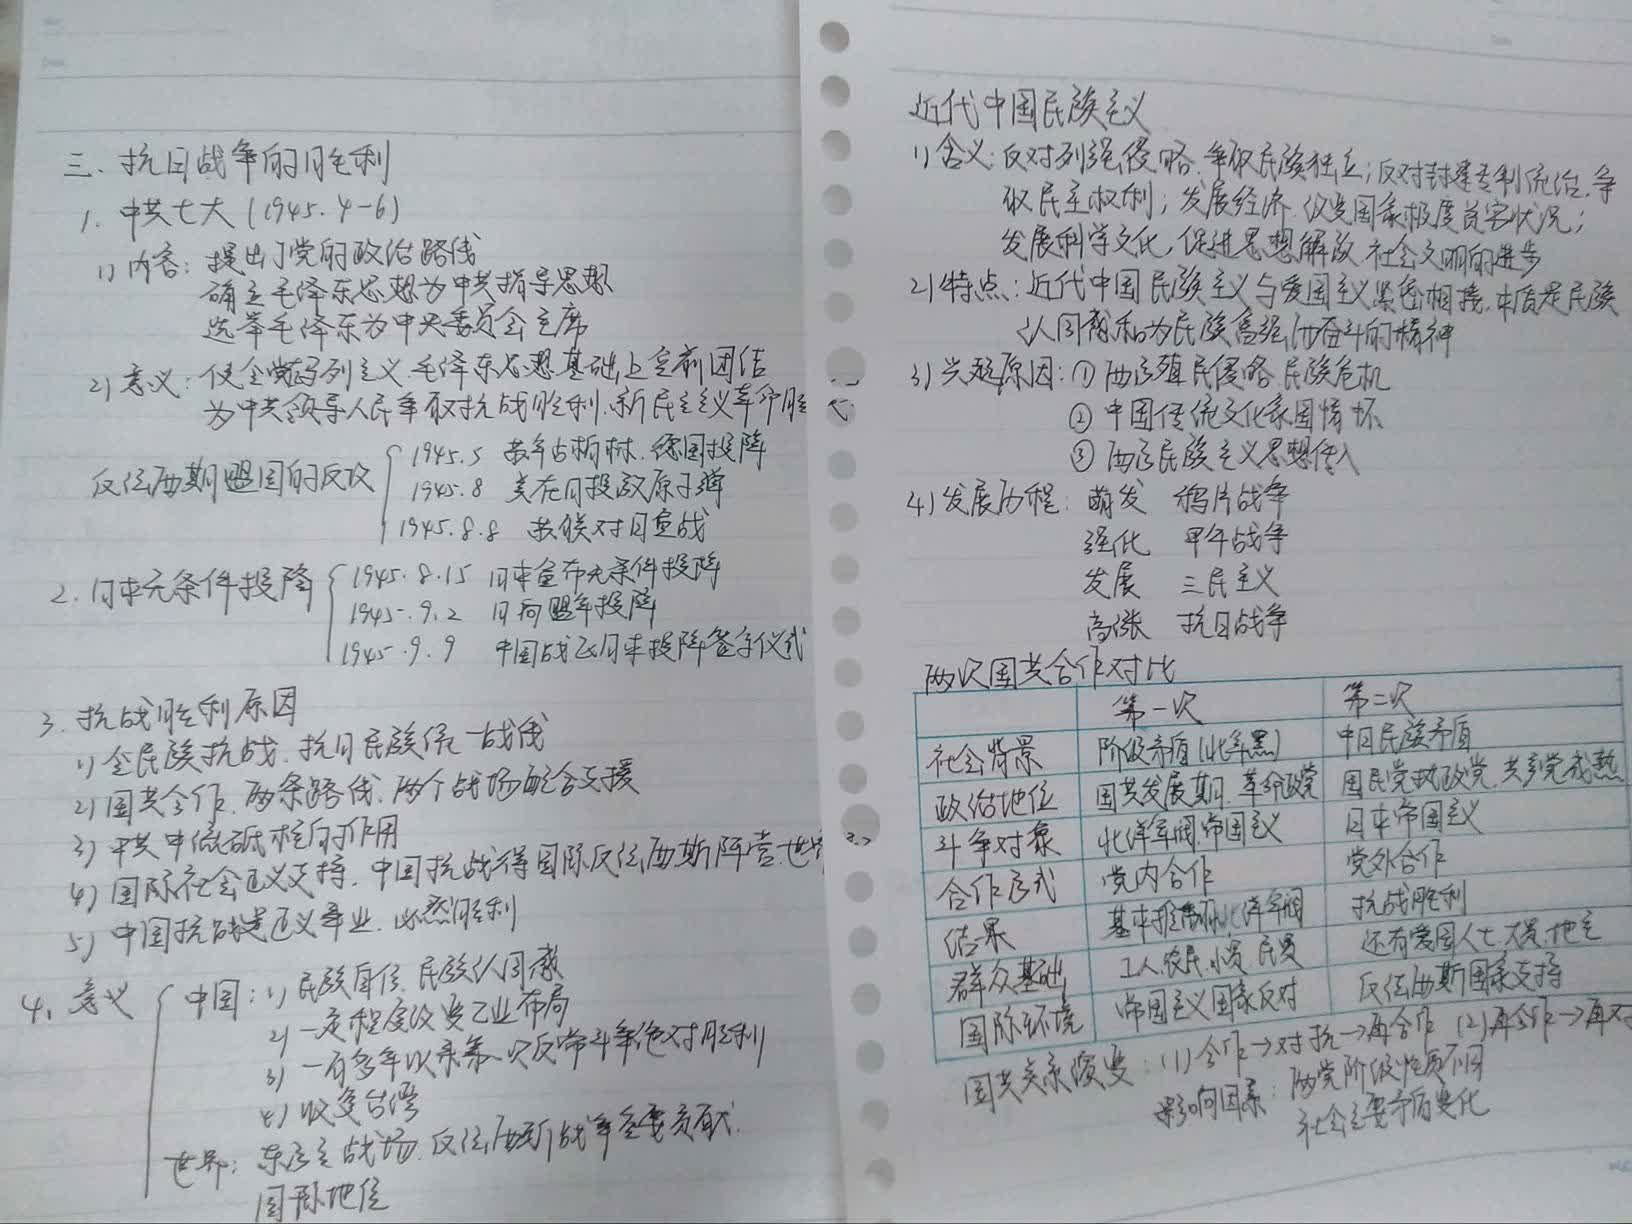 三、抗日战争的胜利
1. 中共七大(1945.4-6)
1) 内容: 提出了党的政治路线
确立毛泽东思想为中共指导思想
选举毛泽东为中央委员会主席
2) 意义: 使全党马列主义、毛泽东思想基础上空前团结
为中共领导人民争取抗战胜利、新民主主义革命胜
反法西斯盟国的反攻
1945.5 苏军占柏林、德国投降
1945.8 美在日投放原子弹
1945.8.8 苏联对日宣战
2. 日本无条件投降
1945.8.15 日本宣布无条件投降
1945.9.2 日向盟军投降
1945.9.9 中国战区日本投降签字仪式
3. 抗战胜利原因
1) 全民族抗战、抗日民族统一战线
2) 国共合作、两条路线、两个战场配合支援
3) 中共中流砥柱的作用
4) 国际社会正义支持、中国抗战得国际反法西斯阵营、世
5) 中国抗战是正义事业、必然胜利
4. 意义
中国: 1) 民族自信、民族认同感
2) 一定程度改变工业布局
3) 一百多年以来第一次反帝斗争绝对胜利
4) 收复台湾
世界: 东方主战场、反法西斯战争重要贡献.
国际地位
近代中国民族主义
1) 含义: 反对列强侵略、争取民族独立; 反对封建专制统治、争
取民主权利; 发展经济、改变国家极度贫穷状况;
发展科学文化, 促进思想解放、社会文明的进步
2) 特点: 近代中国民族主义与爱国主义紧密相接、本质是民族
认同感和为民族富强而奋斗的精神
3) 兴起原因: ① 西方殖民侵略、民族危机
② 中国传统文化家国情怀
③ 西方民族主义思想传入
4) 发展历程: 萌发 鸦片战争
强化 甲午战争
发展 三民主义
高涨 抗日战争
两次国共合作对比
第一次 第二次
社会背景 阶级矛盾(北军黑) 中日民族矛盾
政治地位 国共发展期、革命政党 国民党执政党、共产党成熟
斗争对象 北洋军阀、帝国主义 日本帝国主义
合作方式 党内合作 党外合作
结果 基本推翻北洋军阀 抗战胜利
群众基础 工人、农民、小资、民资 还有爱国人士、大资、地主
国际环境 帝国主义国家反对 反法西斯国家支持
国共关系演变: (1) 合作→对抗→再合作 (2) 再合作→再对
影响因素: 两党阶级性质不同
社会主要矛盾变化